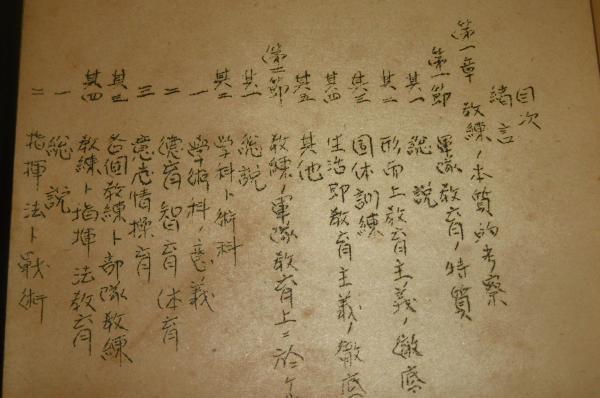 目次
緒言
第一章 教練ノ本質的考察
第一節 軍隊教育ノ特質
其一 総説
其二 形而上教育主義ノ徹底
其三 団体訓練
其四 生活即教育主義ノ徹底
其五 其他
第二節 教練ノ軍隊教育上ニ於ケル
其一 総説
其二 学科ト術科
一 学術科ノ意義
二 德育智育体育
三 意志情操育
其三 各個教練ト部隊教練
其四 教練ト指揮法教育
一 総説
二 指揮法ト戦術